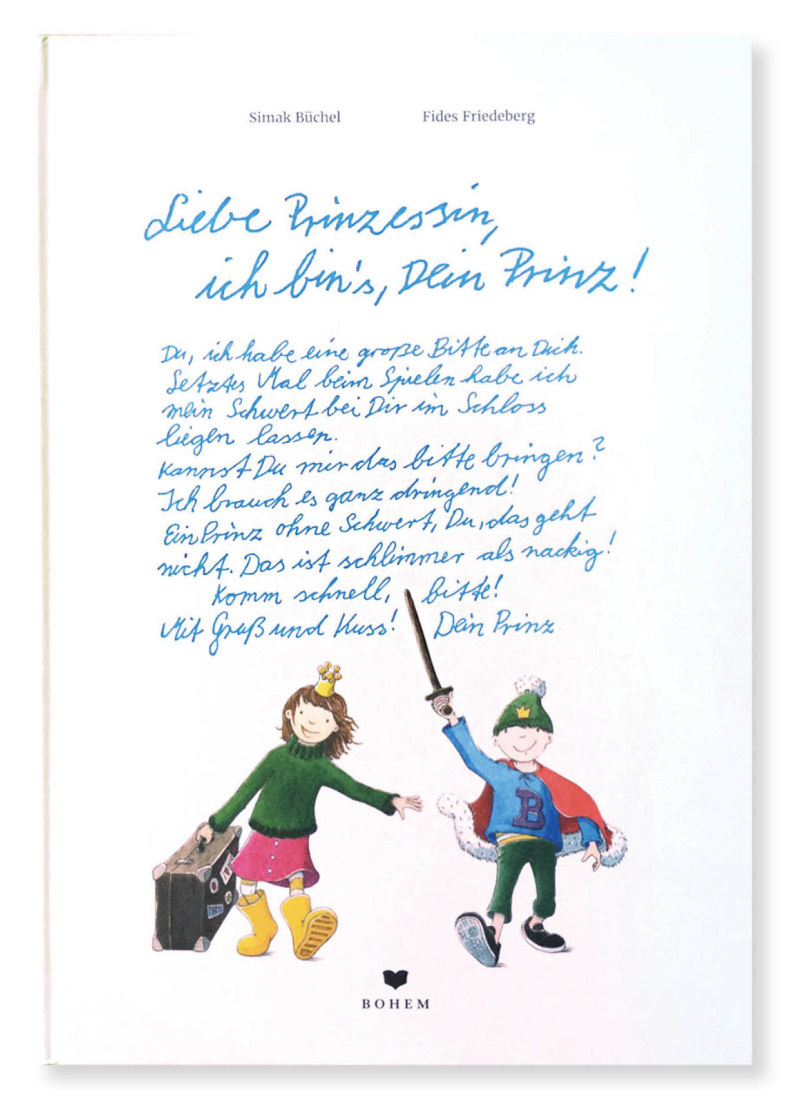 Simak Büchel Fides Friedeberg
Liebe Prinzessin,
ich bin's, Dein Prinz!
Du, ich habe eine große Bitte an Dich.
Letztes Mal beim Spielen habe ich
mein Schwert bei Dir im Schloss
liegen lassen.
Kannst Du mir das bitte bringen?
Ich brauch es ganz dringend!
Ein Prinz ohne Schwert, Du, das geht
nicht. Das ist schlimmer als nackig!
Komm schnell, bitte!
Mit Gruß und Kuss! Dein Prinz
B
BOHEM